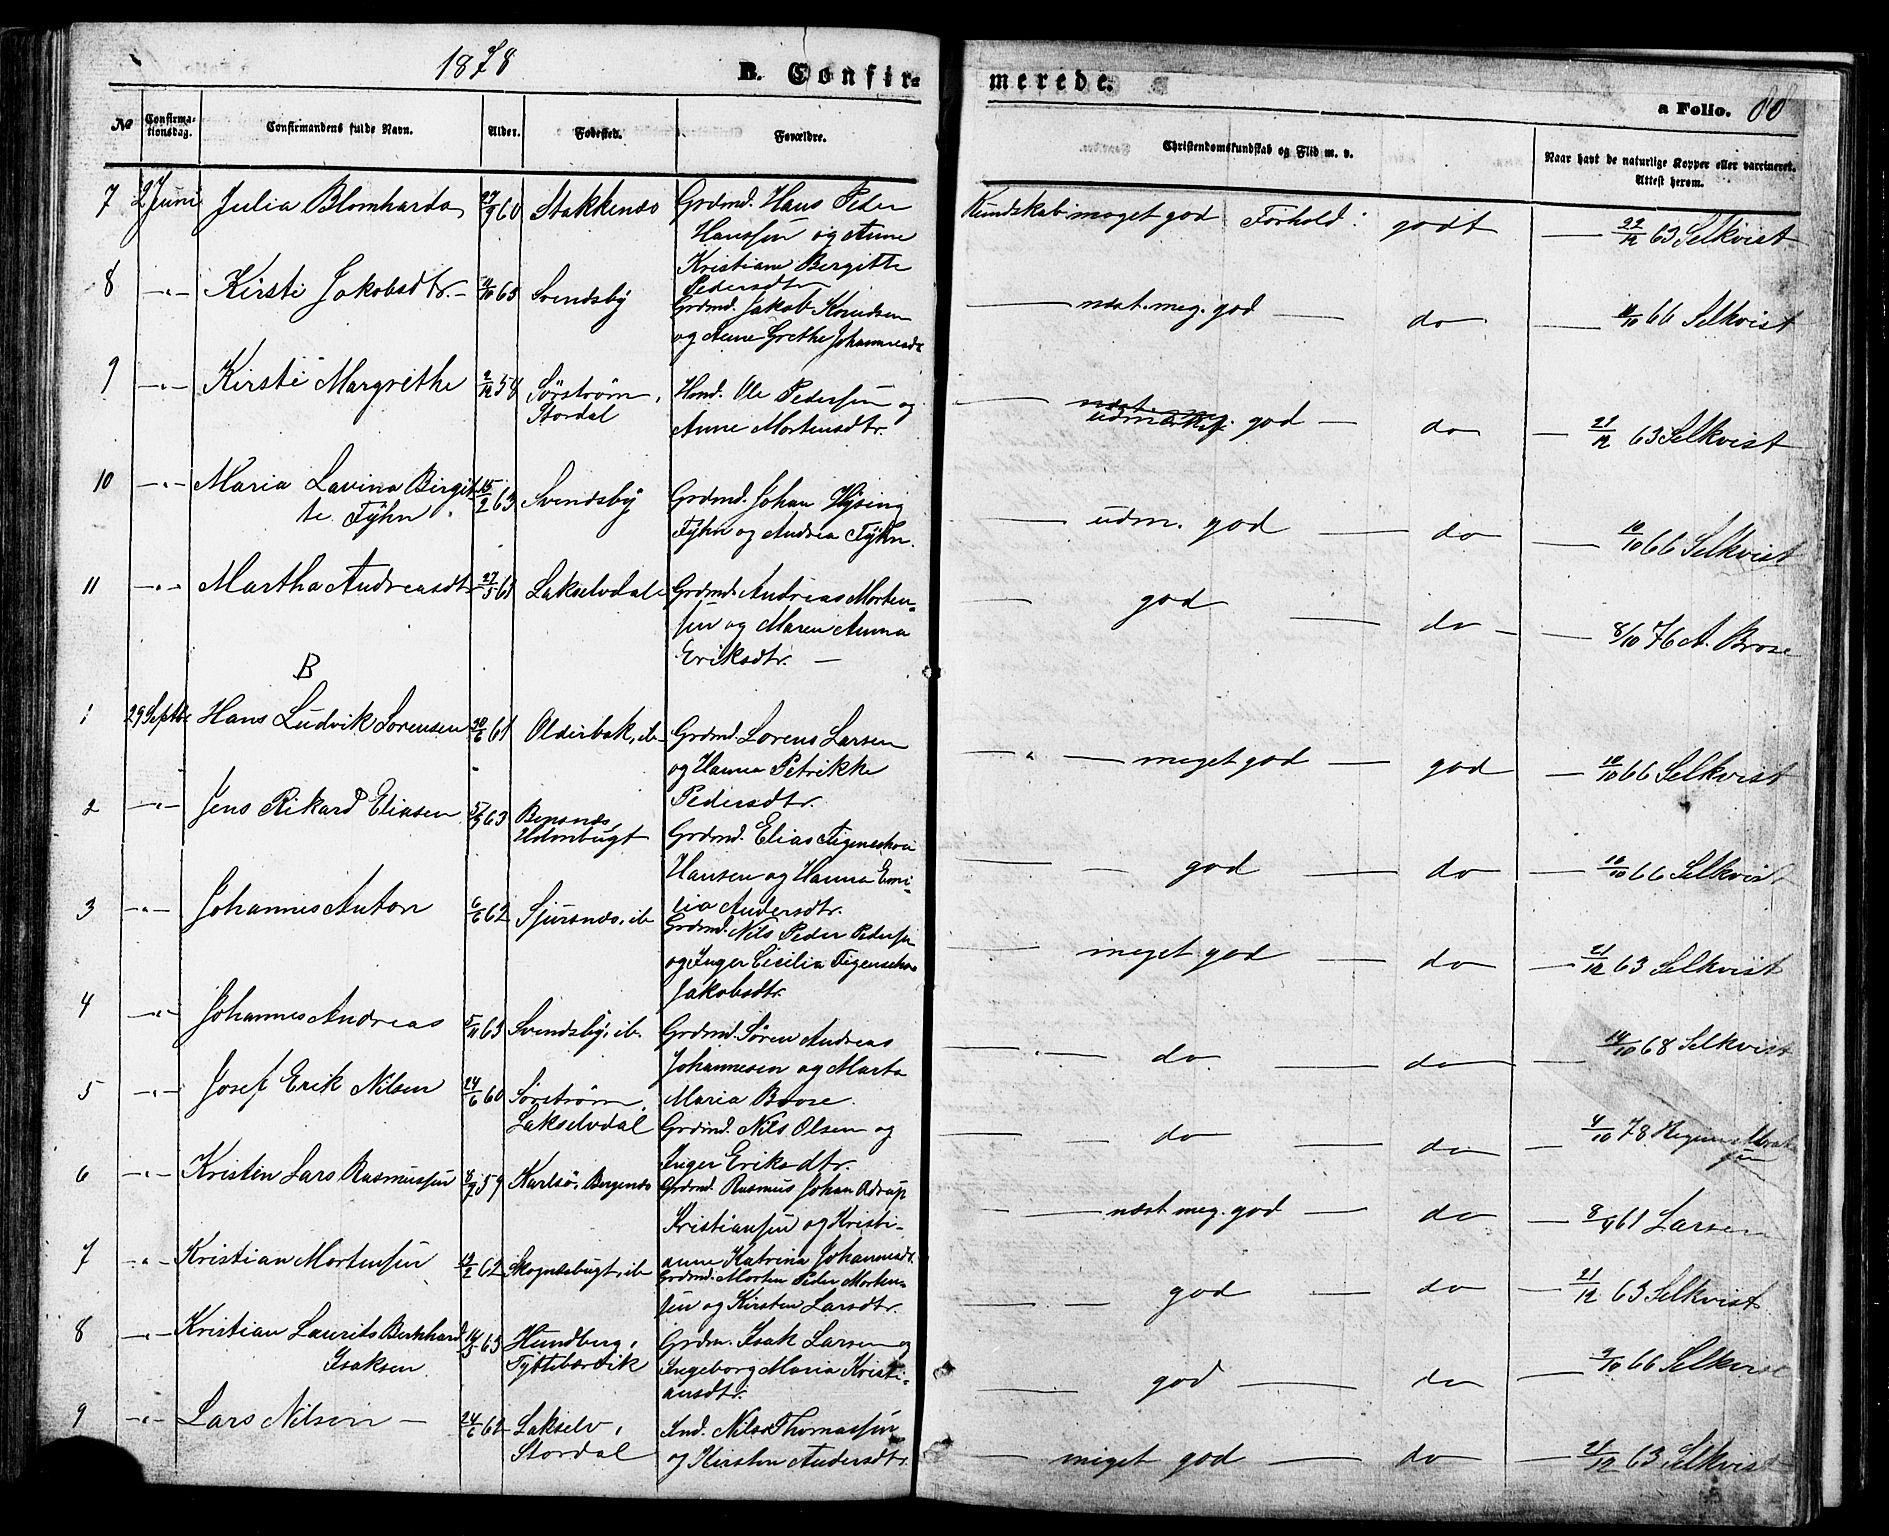 1878
B. Confir-
merede.
a Folio. 88
No
Confirma-
tionsdag.
Confirmandens fulde Navn.
Alder.
Fødested.
Forældre.
Christendomskundskab og Flid m. v.
Naar havt de naturlige Kopper eller vaccineret.
Attest herom.
7 2 Juni Julia Blomharda 27/9 60 Stakkenæs Grdmd. Hans Peder
Hanssen og Anne
Kristiane Bergitte
Pedersdtr
Kundskab meget god Forhold: godt — 22/12 63 Selkvist
8 —"— Kirsti Jakobsdtr. — 63 Svendsby Grdmd. Jakob Knudsen
og Anne Grethe Johannesdt
— næst. meg. god — do — 10/10 66 Selkvist
9 —"— Kirsti Margrethe 2/12 58 Sørstrøm,
Stordal
Hmd. Ole Pedersen og
Anne Mortensdtr.
— god — do — 21/12 63 Selkvist
10 —"— Maria Lavina Birgit-
te Fyhn
15/2 63 Svendsby Grdmd. Johan Hysing
Fyhn og Andrea Fyhn.
— udm. god — do — 10/10 66 Selkvist
11 —"— Martha Andreasdtr 27/5 61 Lakselvdal Grdmd. Andreas Morten-
sen og Maren Anna
Eriksdtr. —
— god — do — 8/10 76 A. Brose
B
1 29 Septbr Hans Ludvik Lorensen 30/6 61 Olderbak, ib Grdmd. Lorens Larsen
og Hanna Petrikke
Pedersdtr.
—"— meget god — god — 10/10 66 Selkvist
2 —"— Jens Rikard Eliasen 5/9 63 Bensnæs,
Holmbugt
Grdmd. Elias Figenschou
Hansen og Hanna Emi-
lia Andersdtr.
— god — do — 10/10 66 Selkvist
3 —"— Johannes Anton 6/6 62 Sjursnæs, ib Grdmd. Nils Peder Pedersen
og Inger Cicilia Figenschou
Jakobsdtr.
— meget god — do — 21/12 63 Selkvist
4 —"— Johannes Andreas 5/11 63 Svendsby, ib. Grdmd. Søren Andreas
Johannesen og Marta
Maria Boose.
—"— do — do — 14/10 68 Selkvist
5 —"— Josef Erik Nilsen 24/6 60 Sørstrøm,
Lakselvdal
Grdmd. Nils Olsen og
Inger Eriksdtr.
— do — do — 4/10 78
6 —"— Kristen Lars Rasmussen 59 Karlsö, Bergenæs Grdmd. Rasmus Johan
Kristiansen og Kristi-
anne Katrina Johannesdt.
— næst meg. god — do — 8/9 61 Larsen
7 —"— Kristian Mortensen 13/2 62 Skognæsbugt, ib Grdmd. Morten Peder Morten-
sen og Kirsten Larsdtr.
— god — do — 21/12 63 Selkvist
8 —"— Kristian Laurits Bernhard
Isaksen
14/3 63 Hundberg,
Tyttebærvik
Grdm. Isak Larsen og
Ingeborg Maria Kristi-
ansdtr.
— god — do — 9/10 66 Selkvist
9 —"— Lars Nilsen — 24/6 62 Lakselv,
Stordal
Ind. Nils Thomassen
og Kirsten Andersdtr.
— meget god — do — 21/12 63 Selkvist